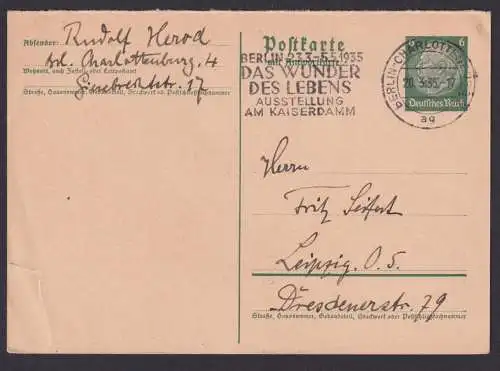 Absender: Rudolf Herod
Bd. Charlottenburg. 4
Wohnort, auch Zustell- oder Leitpostamt
Giesebrechtstr. 17
Straße, Hausnummer, Gebäudeteil, Stockwerk od. Postschließfachnummer
Postkarte
mit Antwortkarte
BERLIN 23.3.-5.5.1935
DAS WUNDER
DES LEBENS
AUSSTELLUNG
AM KAISERDAMM
BERLIN-CHARLOTTENBURG
20.3.35
aq
6
Deutsches Reich
Herrn
Fritz Seifert
Leipzig. O. 5.
Dresdenerstr. 79
Straße, Hausnummer, Gebäudeteil, Stockwerk oder Postschließfachnummer